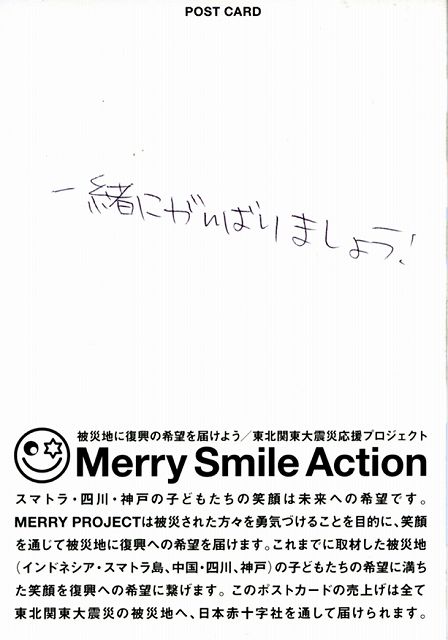 POST CARD
一緒にがんばりましょう!
被災地に復興の希望を届けよう／東北関東大震災応援プロジェクト
Merry Smile Action
スマトラ・四川・神戸の子どもたちの笑顔は未来への希望です。
MERRY PROJECTは被災された方々を勇気づけることを目的に、笑顔
を通じて被災地に復興への希望を届けます。これまでに取材した被災地
(インドネシア・スマトラ島、中国・四川、神戸)の子どもたちの希望に満ち
た笑顔を復興への希望に繋げます。このポストカードの売上げは全て
東北関東大震災の被災地へ、日本赤十字社を通して届けられます。